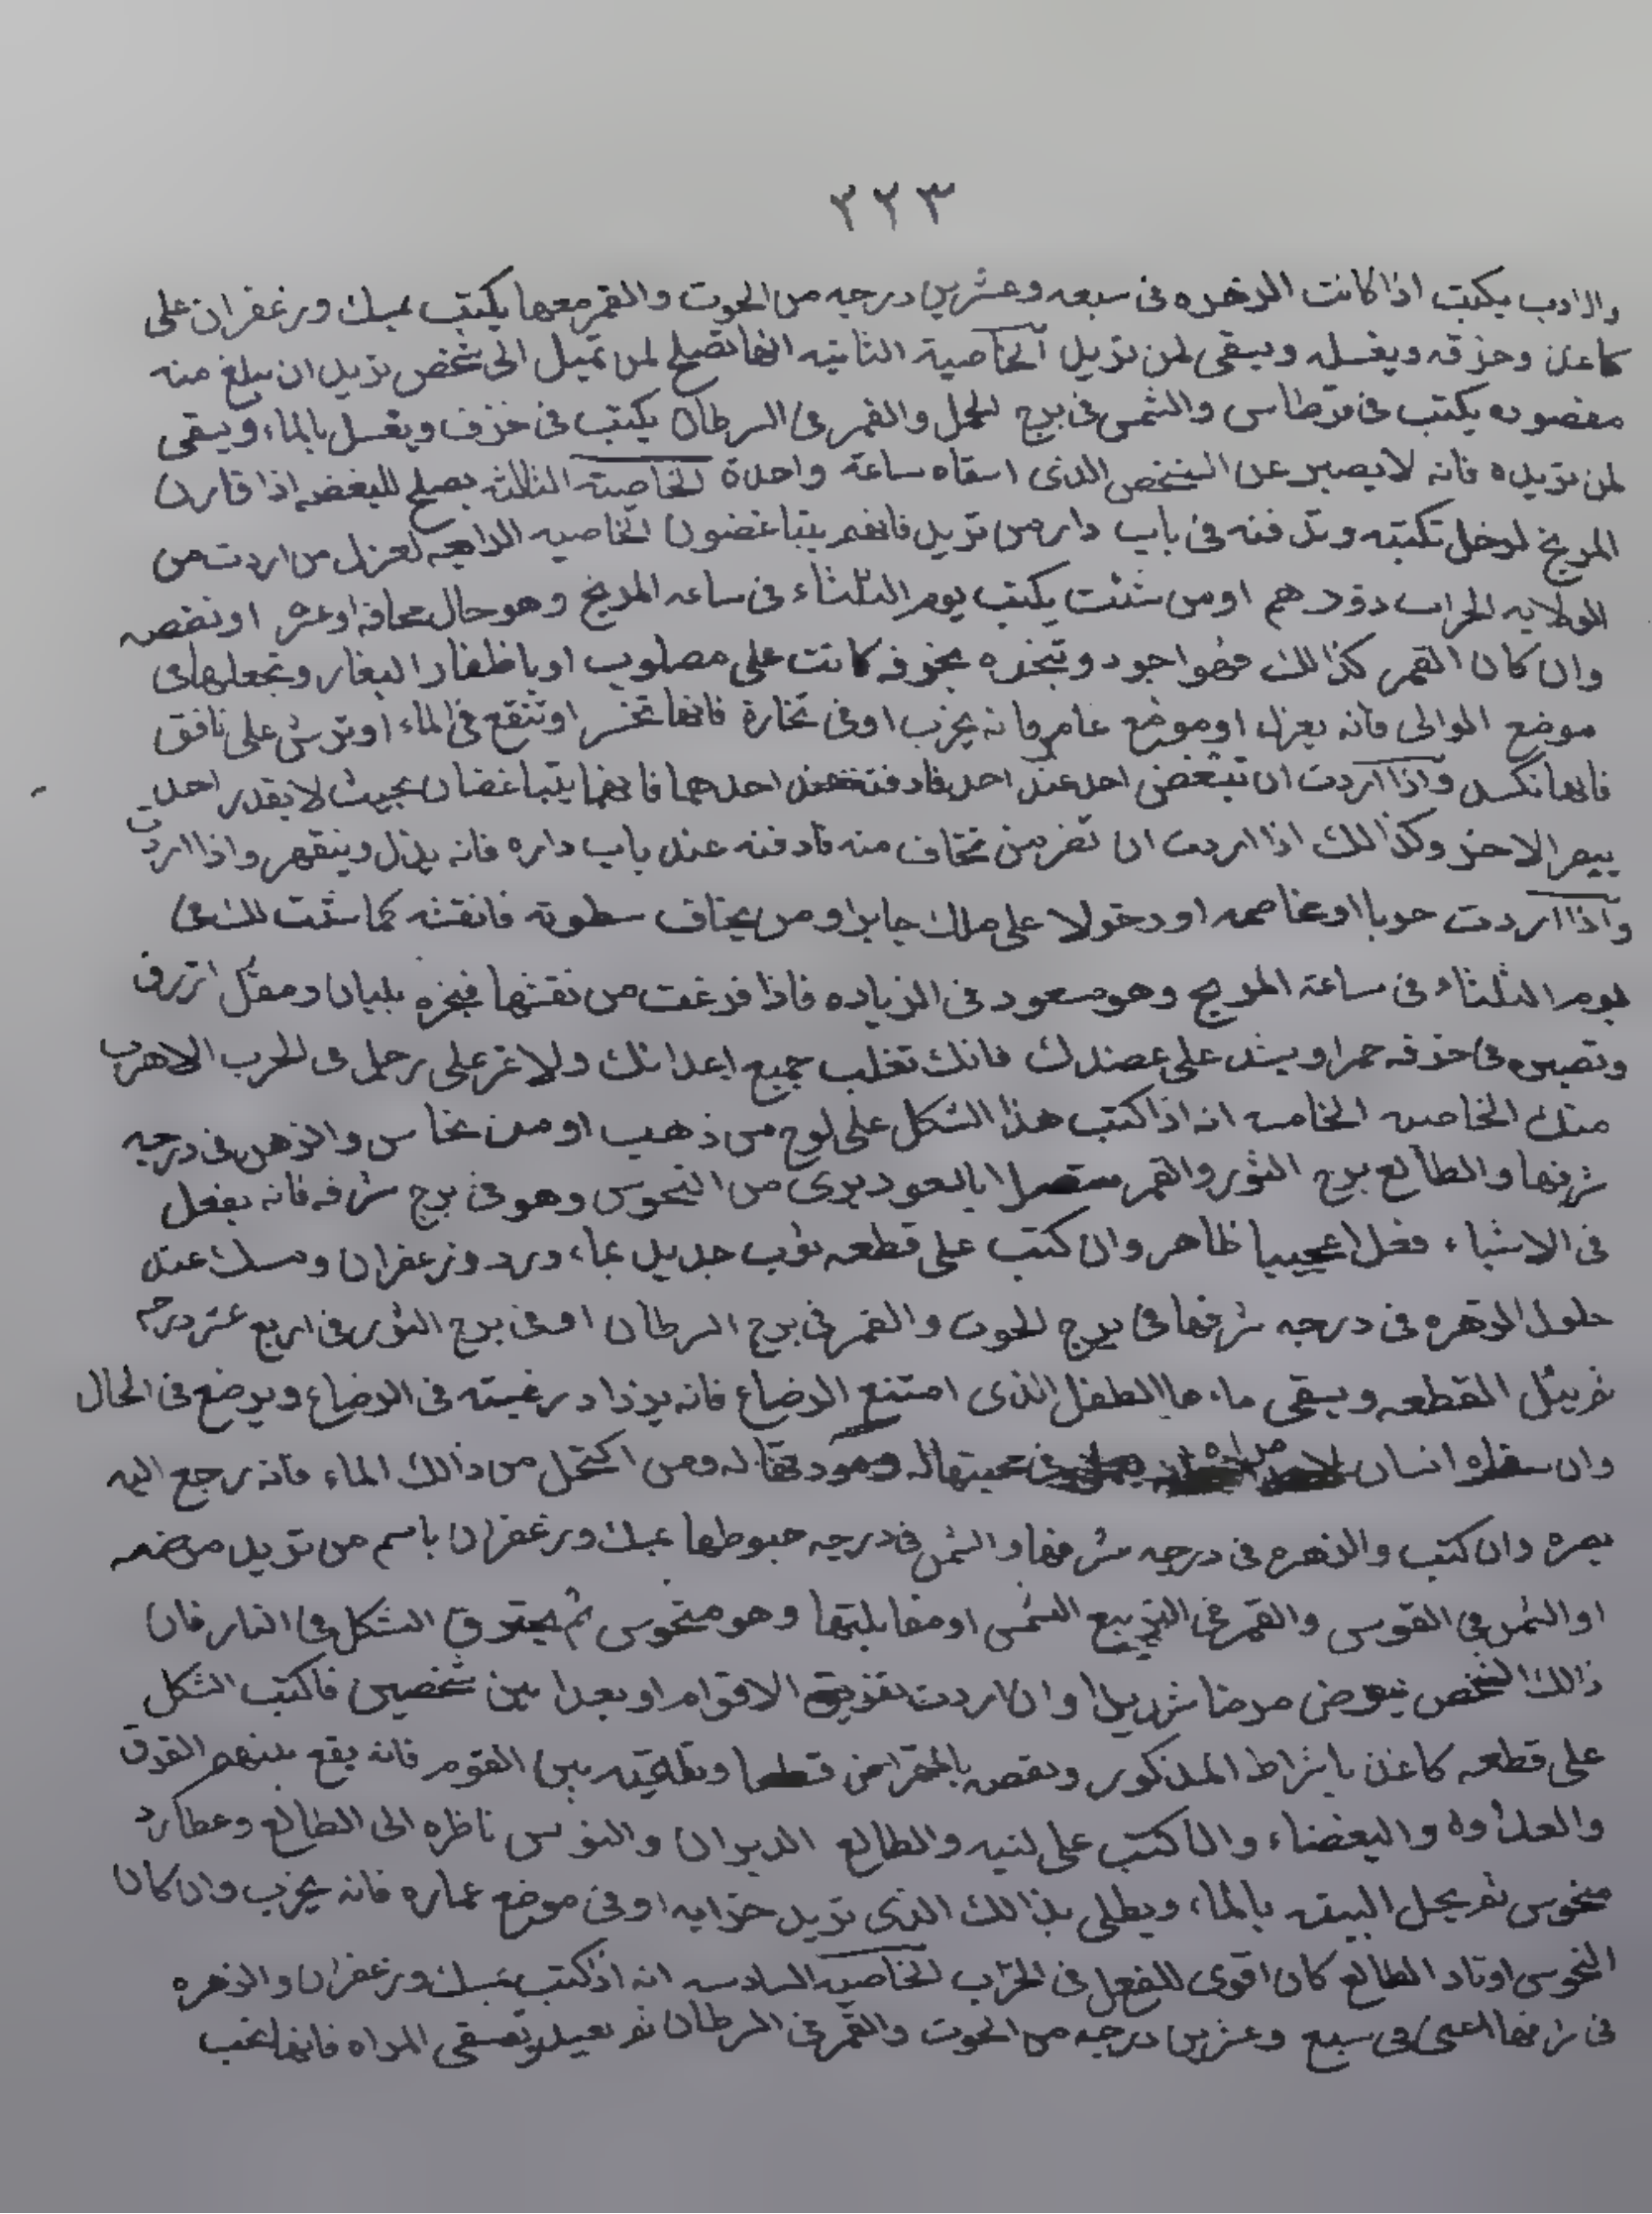 ٢٢٣
والادب يكتب اذا كانت الزهره فى سبعه وعشرين درجه من الحوت والقمر معها يكتب بمسك وزعفران على
كاعذ وحزقه ويغسله ويسقى لمن تزيل الخاصية الثانيه انها تصلح لمن تميل الى شخص تزيل ان يبلغ منه
مقصوده يكتب فى قرطاس والشمس فى برج الحمل والقمر فى السرطان يكتب فى خزف ويغسل بالماء ويسقى
لمن تزيده فانه لا يصبر عن الشخص الذى اسقاه ساعة واحدة الخاصية الثالثه يصلح للبغضه اذا قارن
المريخ لزحل تكتبه وتدفنه فى باب دار من تريد فانهم يتباغضون الخاصيه الرابعه لعزل من اردت من
الولايه الخراب دورهم او من شئت يكتب يوم الثلثاء فى ساعه المريخ وهو حال محاقه او عشر او نقصه
وان كان القمر كذالك فهو اجود وتبخره بخرفه كانت على مصلوب او باظفار البغار وتجعلها فى
موضع الوالى فانه يعزل او موضع عامر فانه يخرب او فى تخارة فانها تخسر او تنقع فى الماء او ترش على نافق
فانها تكسد واذا اردت ان تبغض احد عند احد فادفنه عند احدهما فانهما يتباغضان بحيث لا يقدر احد
يبصر الاخر وكذالك اذا اردت ان تضر من تخاف منه فادفنه عند باب داره فانه يذل وينقهر واذا اردت
واذا اردت حربا او مخاصمه او دخولا على ملك جاير او من يخاف سطوته فانقشه كما شئت للك فى
يوم الثلثاء فى ساعة المريخ وهو مسعود فى الزياده فاذا فرغت من نقشها فبخره بلبان ومقل ازرق
وتصيره فى خرقه حمرا ويشد على عضدك فانك تغلب جميع اعدائك ولا تمر على رجل فى الحرب الا هرب
منك الخاصيه الخامسه انه اذا كتب هذا الشكل على لوح من ذهب او من نحاس والزهره فى درجه
شرفها والطالع برج الثور والقمر متصلا بالسعود برى من النحوس وهو فى برج شرفه فانه يفعل
فى الاشياء فعلا عجيبا ظاهر وان كتب على قطعه ثوب جديد بماء ورد وزعفران ومسك عند
حلول الزهره فى درجه شرفها فى برج الحوت والقمر فى برج السرطان او فى برج الثور فى اربع عشر درجه
ثم يبل القطعه ويسقى ماءها الطفل الذى امتنع الرضاع فانه يزداد رغبته فى الرضاع ويرضع فى الحال
وان سقاه انسان محبتها له ومودتها له ومن اكتحل من ذالك الماء فانه يرجع اليه
بصره وان كتب والزهره فى درجه شرفها والشمس فى درجه هبوطها بمسك وزعفران باسم من تريد مرضه
او الشمس فى القوس والقمر فى التربيع الشمس او مقابلتها وهو منحوس ثم يحترق الشكل فى النار فان
ذالك الشخص يمرض مرضا شديدا وان اردت تفريق الاقوام او بعدا بين شخصين فاكتب الشكل
على قطعه كاغد باشراط المذكور وتقصه بالمقراض قطعا وتلقيه بين القوم فانه يقع بينهم الفرق
والعداوه والبغضاء وان كتب على لنيه والطالع الدبران والنوس ناظره الى الطالع وعطارد
منحوس ثم يحل البيته بالماء ويطلى بذالك الذى تريد خرابه او فى موضع عماره فانه يخرب وان كان
النحوس اوتاد الطالع كان اقوى للفعل فى الخراب الخاصيه السادسه انه اذا كتب بمسك وزعفران والزهره
فى شرفها اعنى فى سبع وعشرين درجه من الحوت والقمر فى السرطان ثم تعيد وتسقى المراه فانها تحب